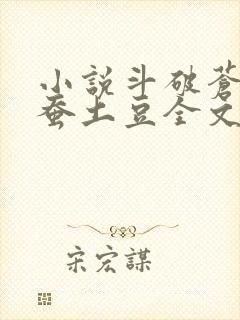 小說斗破蒼
蚕土豆全文
宋宏謀